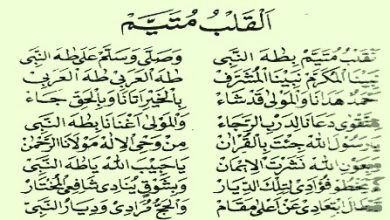 اَلْقَلْبُ مُتَيَّمٌ
الْقَلْبُ مُتَيَّمٌ بِطٰهَ النَّبِي وَصَلَّى وَسَلَّمَ عَلَى طٰهَ النَّبِي
نَبِيُّنَا الْمُكَرَّمْ نَبِيُّنَا الْمُشَرَّفْ طٰهَ الْعَرَبِي طٰهَ الْعَرَبِي
مُحَمَّدْ هَدَانَا وَالْمَوْلَى قَدْ شَاءْ بِالْخَيْرِ اَتَانَا وَبِالْحَقِّ جَاءْ
دَعَانَا لِدَرْبِ الرَّجَاءْ وَالْمَوْلَى اَغْنَانَا بِطٰهَ النَّبِي
يَارَسُولَ اللهِ جِئْتَ بِالْقُرْآنْ مِنْ وَحْيِ الْاِلٰهِ مَوْلَانَا الرَّحْمٰنْ
بِعَوْنِ اللهِ نَشَرْتَ الْاِيْمَانْ يَا حَبِيبَ اللهِ يَاطٰهَ النَّبِي
فُؤَادِي لِتِلْكَ الدِّيَارْ وَبِشَوْقٍ يُنَادِي الْمُخْتَارْ
بُعَادِي عَنْ مَقَامْ وَالْحَجُّ مُرَادِي وَدِيَارُ النَّبِي